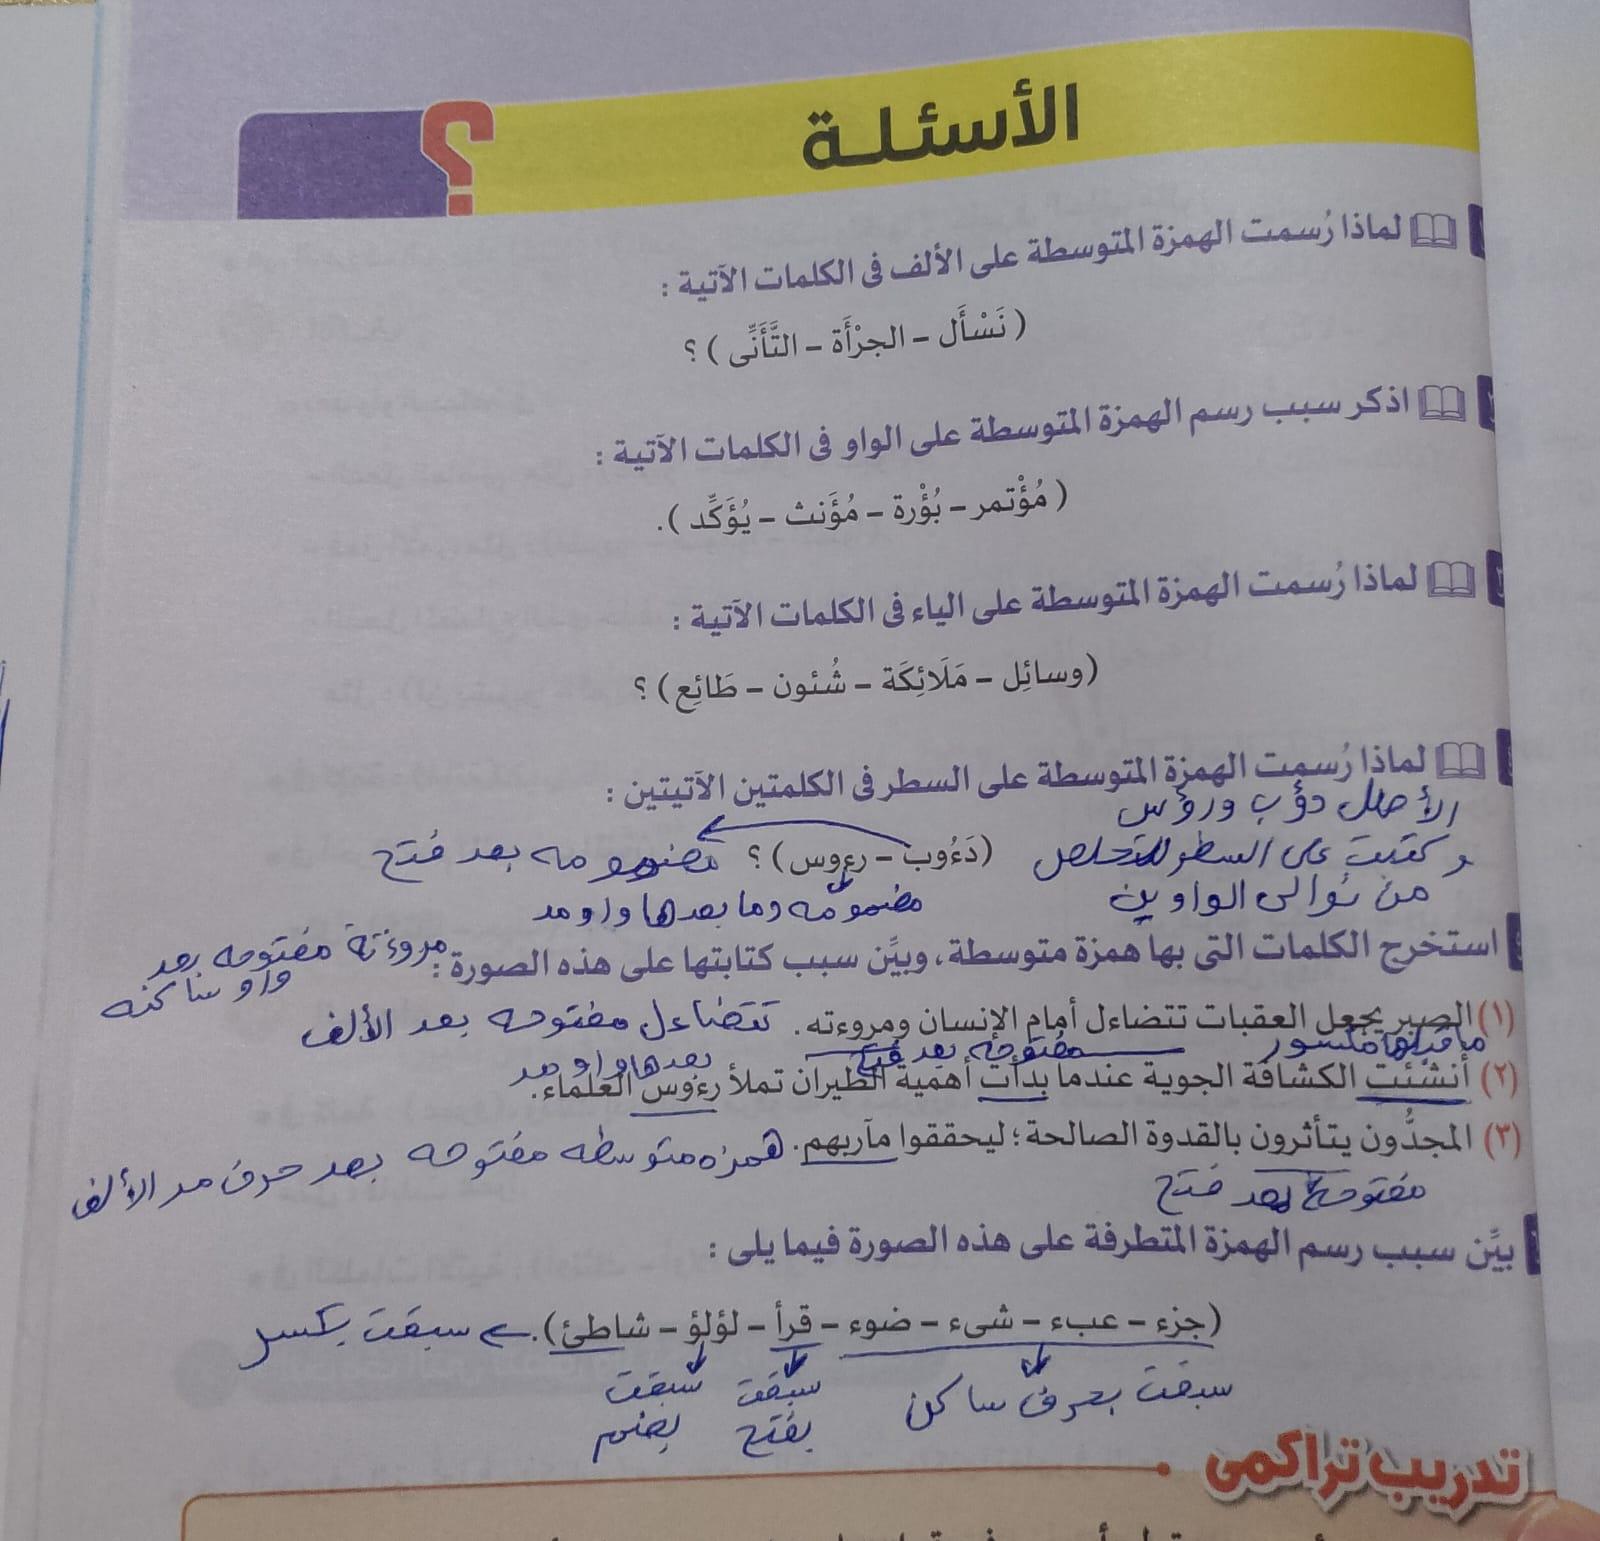 الأسئلة ؟
لماذا رُسمت الهمزة المتوسطة على الألف فى الكلمات الآتية :
( نَسْأَل – الجرْأَة – التَّأَنِّى ) ؟
اذكر سبب رسم الهمزة المتوسطة على الواو فى الكلمات الآتية :
( مُؤْتمر – بُؤْرة – مُؤَنث – يُؤَكِّد ).
لماذا رُسمت الهمزة المتوسطة على الياء فى الكلمات الآتية :
(وسائِل – مَلَائِكَة – شُئون – طَائِع) ؟
لماذا رُسمت الهمزة المتوسطة على السطر فى الكلمتين الآتيتين :
الأصل دؤب ورؤس
(دَءُوب – رءوس) ؟ مضمومه بعد فتح
و كتبت على السطر للتخلص
من توالى الواوين
مضمومه وما بعدها واو مد
استخرج الكلمات التى بها همزة متوسطة، وبيِّن سبب كتابتها على هذه الصورة :
مروءته مفتوحه بعد
واو ساكنه
(١) الصبر يجعل العقبات تتضاءل أمام الإنسان ومروءته. تتضاءل مفتوحه بعد الألف
ما قبلها مكسور
مفتوحه بعد فتح
بعدها واو مد
(٢) أنشئت الكشافة الجوية عندما بدأت أهمية الطيران تملأ رءوس العلماء.
(٣) المجدُّون يتأثرون بالقدوة الصالحة؛ ليحققوا مآربهم. همزه متوسطه مفتوحه بعد حرف مد الألف
مفتوحة بعد فتح
بيِّن سبب رسم الهمزة المتطرفة على هذه الصورة فيما يلى :
(جزء – عبء – شىء – ضوء – قرأ – لؤلؤ – شاطئ). سبقت بكسر
سبقت بحرف ساكن
سبقت بفتح
سبقت بضم
تدريب تراكمى